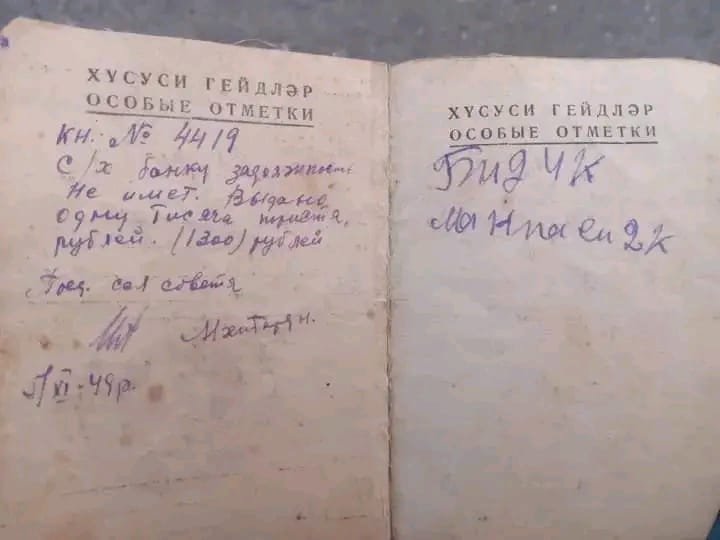 ХҮСУСИ ГЕЙДЛӘР
ОСОБЫЕ ОТМЕТКИ
кн: № 4419
с/х банку задолжность
не имет. Выдано
одну тисяча триста
рублей. (1300) рублей
сел совета
Мхитарян.
XI-49г.
ХҮСУСИ ГЕЙДЛӘР
ОСОБЫЕ ОТМЕТКИ